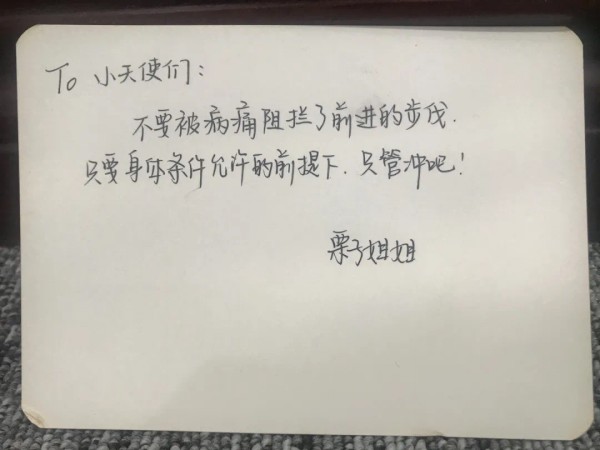 To 小天使们:
不要被病痛阻拦了前进的步伐.
只要身体条件允许的前提下.只管冲吧!
栗子姐姐